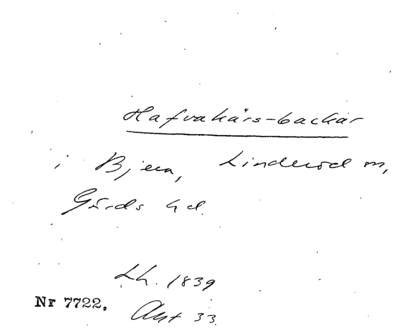 Hafvakärs-backar
i Bjera, Linderöd m,
Gärds hd.
Lh. 1839
Nr 7722. Akt 33